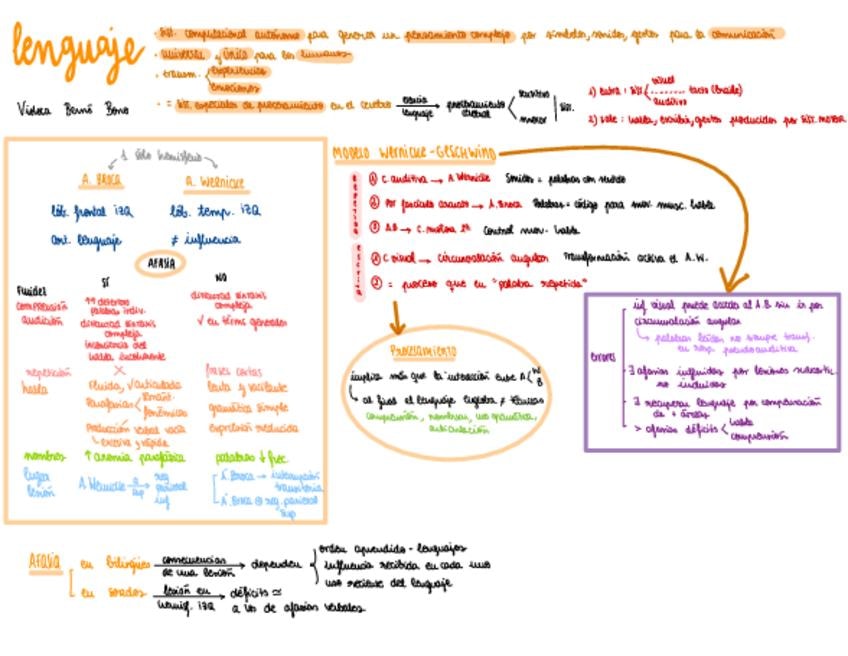 lenguaje
· sist. computacional autónomo para generar un pensamiento complejo por símbolos, sonidos, gestos para la comunicación
· universal y único para los humanos
· transm. experiencias
emociones
· = sist. especiales de procesamiento en el cerebro lenguaje → procesamiento motor sist.
1) entra: sist. visual auditivo tacto (braile)
2) sale: habla, escribir, gestos producidos por sist. motor
1 sólo hemisferio
A. BROCA A. WERNICKE
lób. frontal izq lób. temp. izq
lenguaje ≠ influencia
AFASIA
Fluidez SÍ NO
comprensión audición
↑↑ deterioro palabras indiv.
dificultad sintaxis compleja
habla incoherente
dificultad sintaxis compleja
✓ en términos generales
repetición X frases cortas
habla fluida, ✓ articulada lenta y vacilante
parafasias fonémicas gramática simple
producción verbal vacía expresión reducida
excesiva y rápida
nombres ↑ anomia parafásica palabras ↓ frec.
lugar lesión A. Wernicke reg parietal inf
A. Broca → interrupción transitoria
A. Broca ⊕ reg. parietal sup
MODELO WERNICKE-GESCHWIND
① C. auditiva → A. Wernicke Sonidos = palabras con
② Por fascículo arcuato → A. Broca Palabras = código para mov. musc. habla
③ A.B → C. motora 1ª Control mov. habla
① C visual → circunvalación angular Transformación activa el A.W.
② = proceso que en "palabra repetida"
Procesamiento
implica más que la interacción entre A W B
al final el lenguaje engloba ≠
comprensión, nombrar, uso gramática, articulación
errores
inf visual puede acceder al A.B sin ir por circunvalación angular
palabras leídas no siempre transf. en resp. pseudoauditiva
∃ afasias influidas por lesiones subcortic. no incluidas
∃ recuperar lenguaje por compensación de + áreas
> afasias déficits habla comprensión
AFASIA
en bilingües consecuencias de una lesión → dependen
orden aprendido - lenguajes
influencia recibida en cada uno
uso reciente del lenguaje
en sordos lesión en hemisf. izq → déficits ≃ a los de afasias verbales